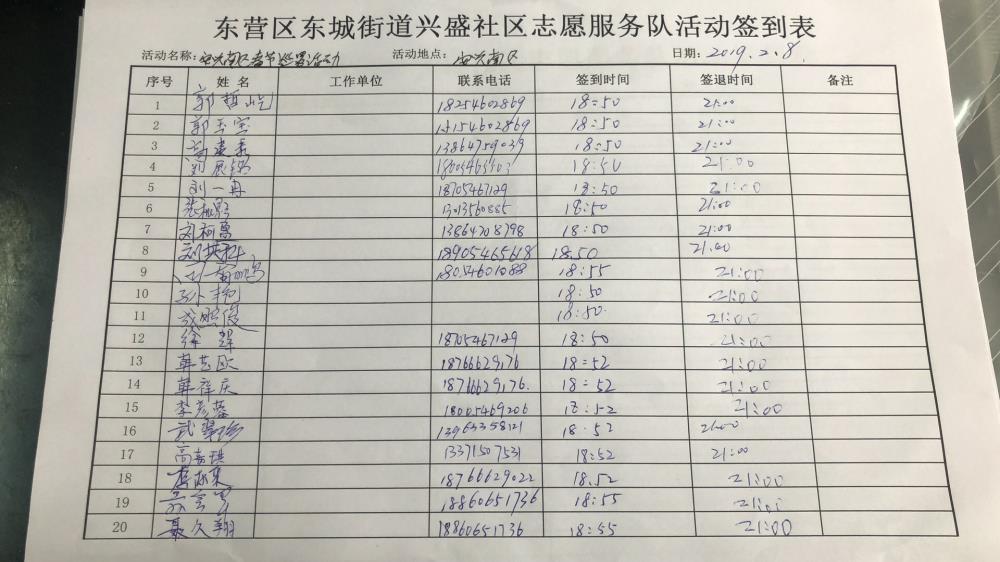 东营区东城街道兴盛社区志愿服务队活动签到表
活动名称:安兴南区春节巡逻活动 活动地点:安兴南区 日期:2019.2.8.
序号 姓名 工作单位 联系电话 签到时间 签退时间 备注
1 郭哲屹 18254602869 18:50 21:00
2 郭玉宝 18:50 21:00
3 13864759039 18:50 21:00
4 18:50 21:00
5 刘一冉 18705467129 18:50 21:00
6 18:50 21:00
7 刘柯蕙 13864708798 18:50 21:00
8 18905465618 18.50 21:00
9 18:55 21:00
10 孙 18:50 21:00
11 18:50. 21:00
12 徐 18705467129 18:50 21:00
13 韩艺欧 18766629176 18:52 21:00
14 韩祥庆 18766629176. 18:52 21:00
15 李彦蓉 18005469206 18:52 21:00
16 武翠珍 18.52 21:00
17 高嘉琪 13371507531 18:52 21:00
18 18766629022 18.52 21:00
19 18860651736 18:55 21:00
20 聂久翔 18860651736 18:55 21:00